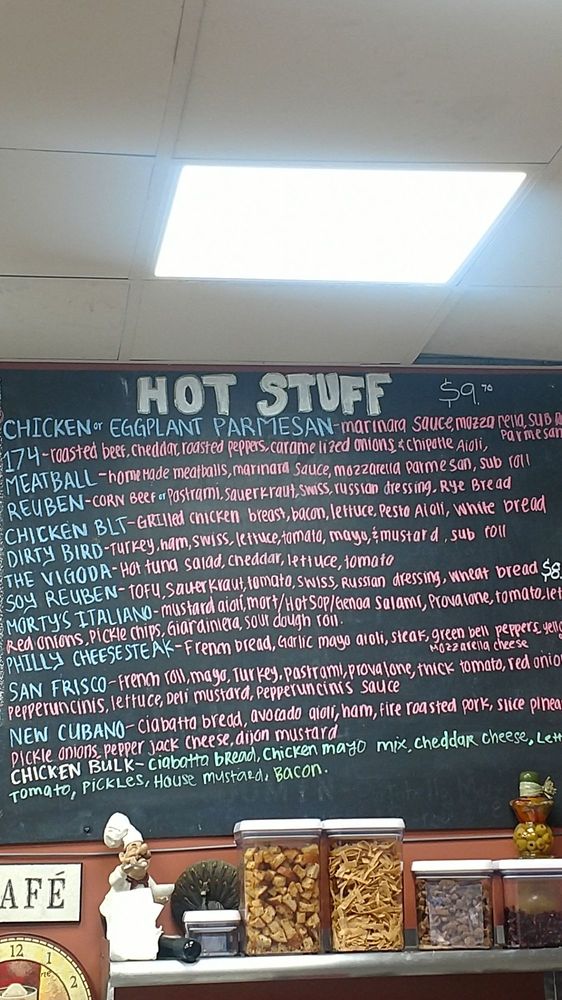 HOT STUFF $9.70
CHICKEN or EGGPLANT PARMESAN-marinara sauce, mozzarella, sub
Parmesan
174-roasted beef, cheddar, roasted peppers, caramelized onions, & chipotle Aioli,
MEATBALL-homemade meatballs, marinara sauce, mozzarella Parmesan, sub roll
REUBEN-CORN BEEF or Pastrami, sauerkraut, swiss, russian dressing, Rye Bread
CHICKEN BLT-GRILLED chicken breast, bacon, lettuce, Pesto Aioli, white bread
DIRTY BIRD-Turkey, ham, swiss, lettuce, tomato, mayo, & mustard, sub roll
THE VIGODA-Hot tuna salad, cheddar, lettuce, tomato
SOY REUBEN-TOFU, Sauerkraut, tomato, swiss, Russian dressing, wheat bread $8.
MORTY'S ITALIANO-mustard aioli, mort/HotSop/Genoa Salami, Provalone, tomato, let
Red onions, Pickle chips, Giardiniera, sour dough roll.
PHILLY CHEESESTEAK-French bread, Garlic mayo aioli, steak, green bell peppers, yello
Mozzarella cheese
SAN FRISCO-french roll, mayo, Turkey, pastrami, provalone, thick tomato, red onio
pepperuncinis, lettuce, Deli mustard, Pepperuncinis sauce
NEW CUBANO-ciabatta bread, avocado aioli, ham, fire roasted pork, slice pinea
Pickle onions, pepper jack cheese, dijon mustard
CHICKEN BULK-ciabatta bread, chicken mayo mix, cheddar cheese, Lett
Tomato, Pickles, House mustard, Bacon.
AFÉ
12
1
2